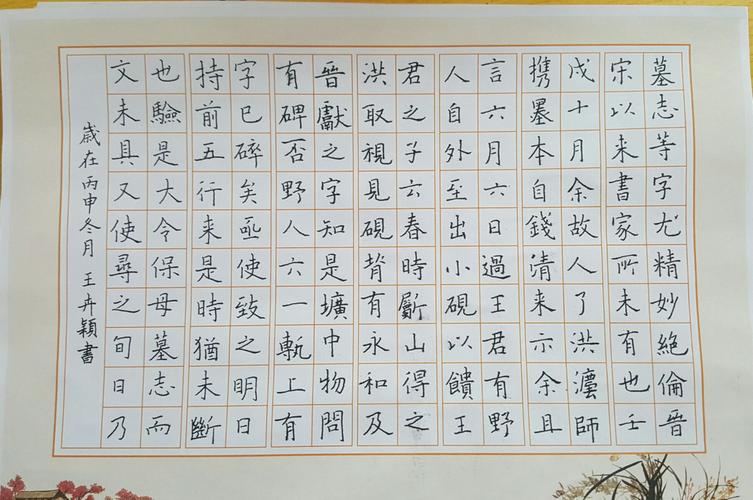 墓志等字尤精妙絶倫晉
宋以来書家所未有也壬
戍十月余故人了洪灋師
携墨本自錢清来示余且
言六月六日過王君有野
人自外至出小硯以饋王
君之子云春時斸山得之
洪取視見硯背有永和及
晉獻之字知是壙中物問
有碑否野人六一甎上有
字已碎矣亟使致之明日
持前五行来是時猶未斷
也驗是大令保母墓志而
文未具又使尋之旬日乃
歳在丙申冬月王卉穎書